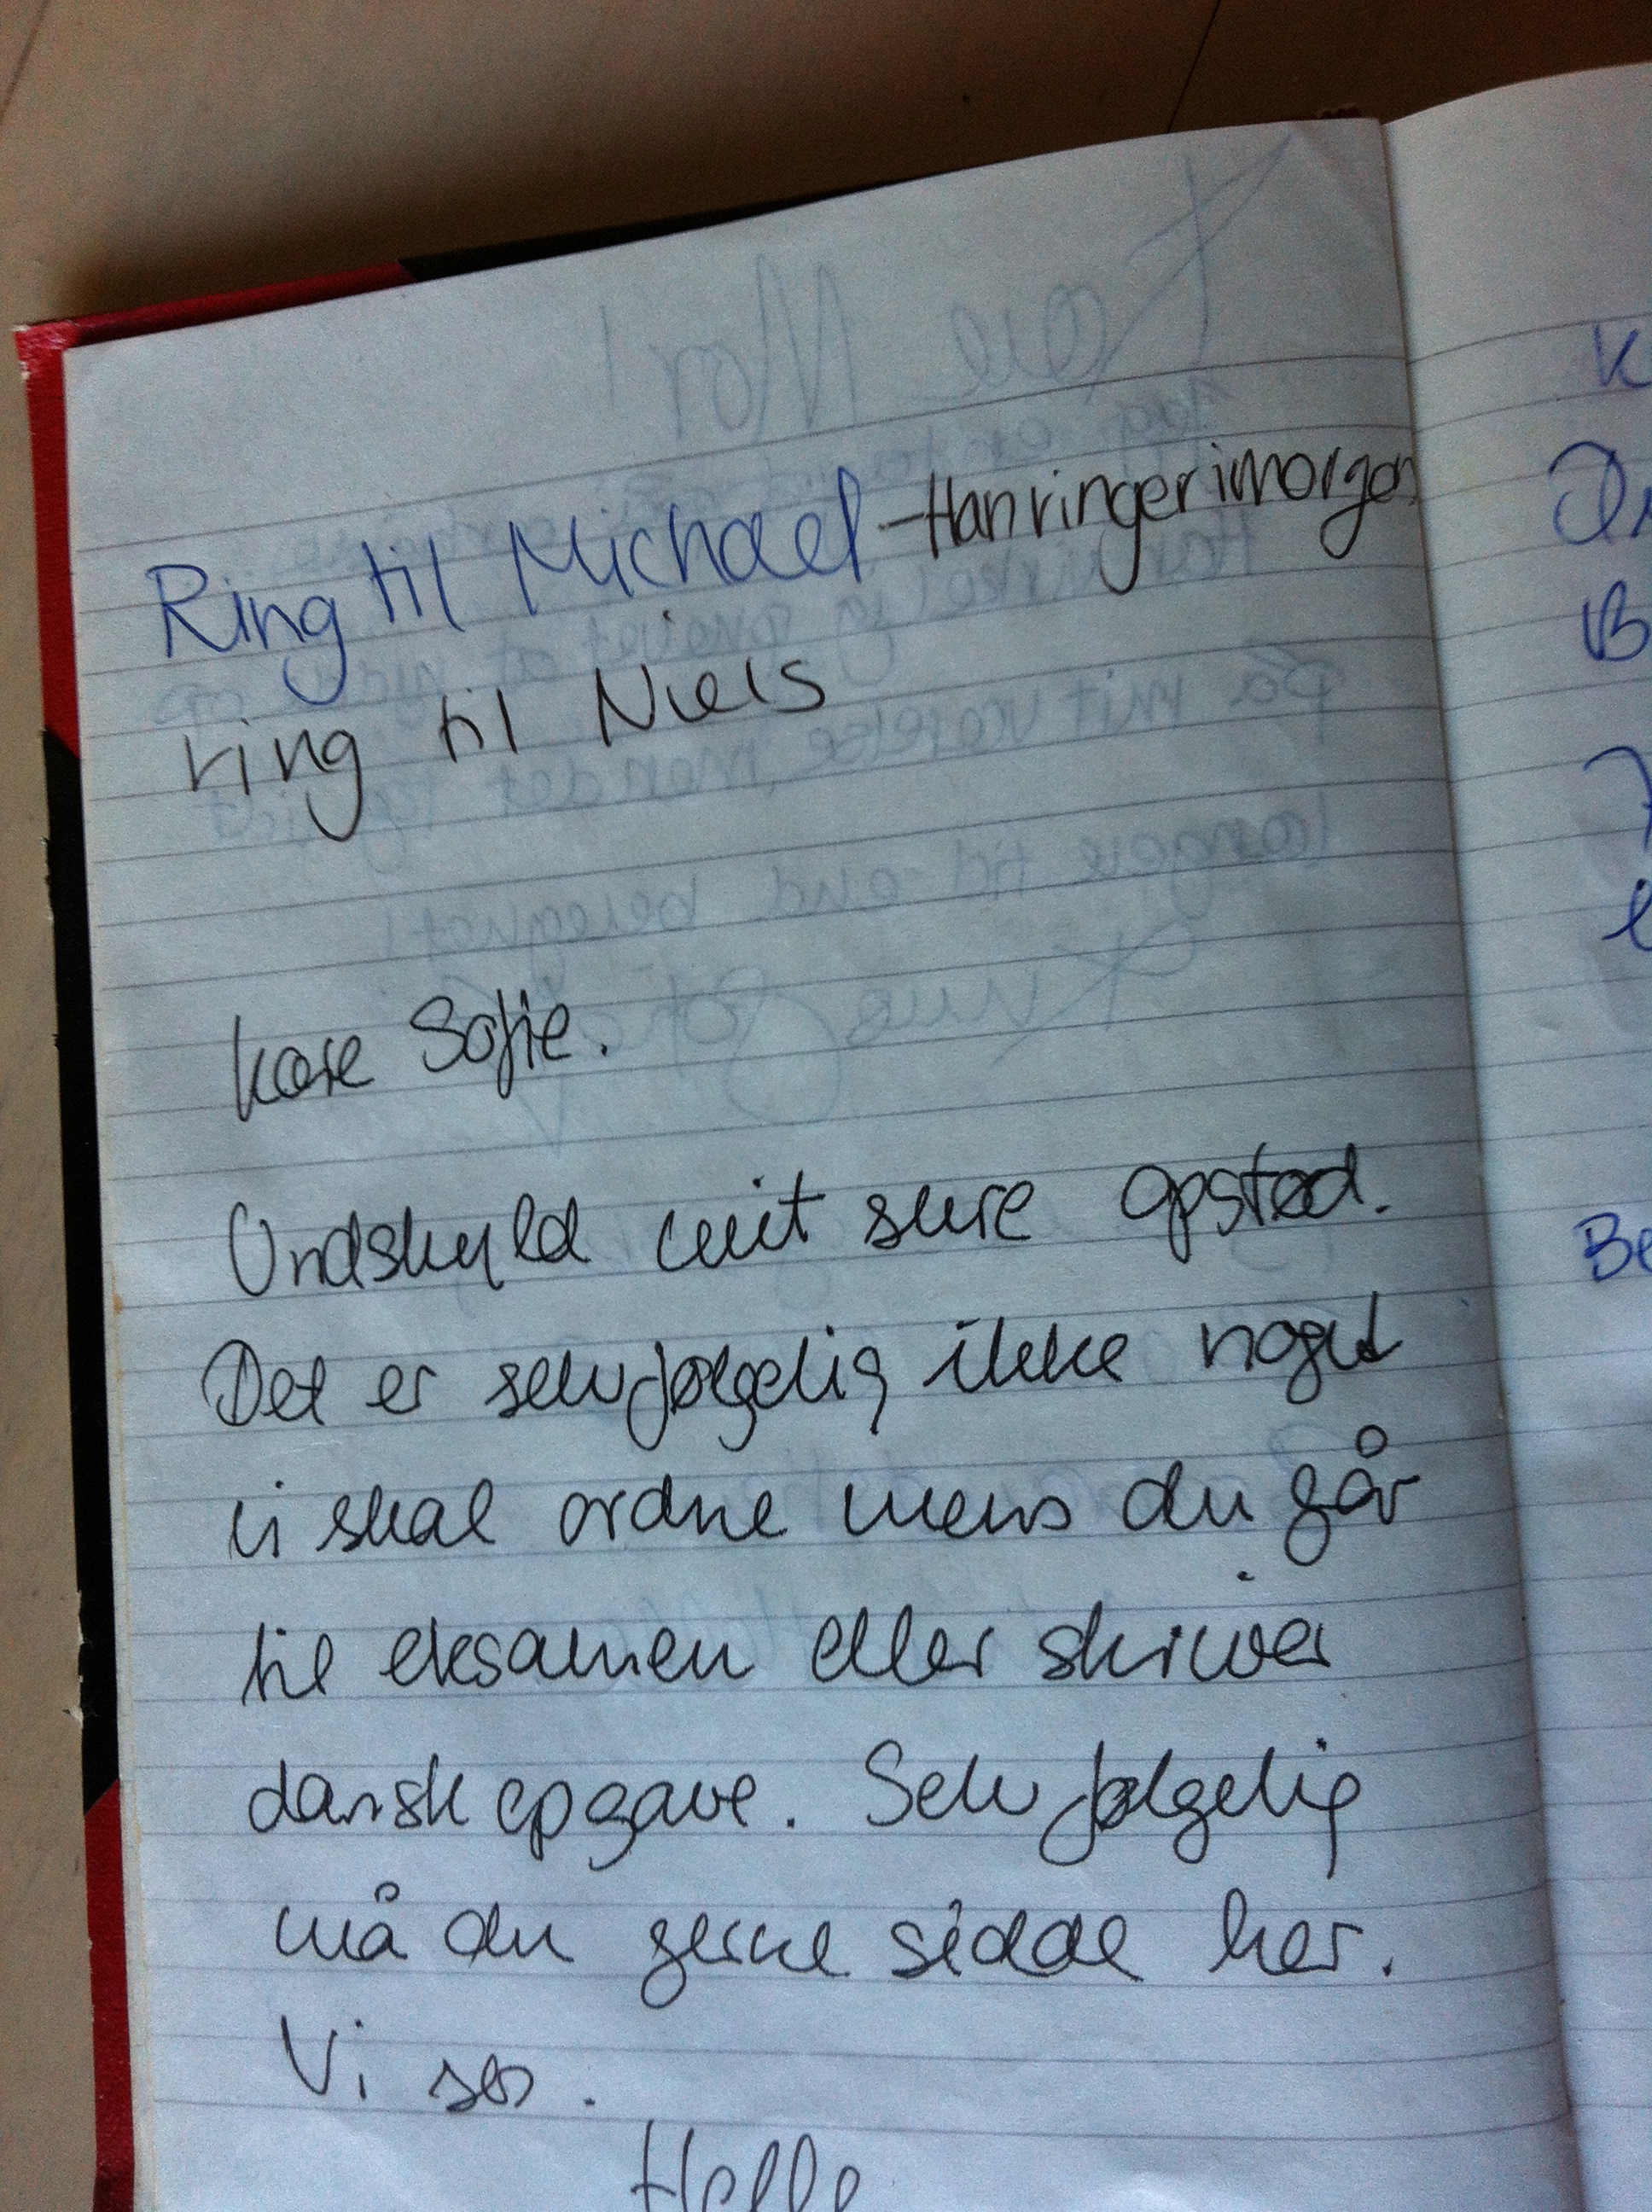 Ring til Michael - Han ringer imorgen
ring til Niels
kære Sofie.
Undskyld mit sure opstød.
Det er selvfølgelig ikke noget
vi skal ordne mens du går
til eksamen eller skriver
dansk opgave. Selvfølgelig
må du gerne sidde her.
Vi ses.
Helle